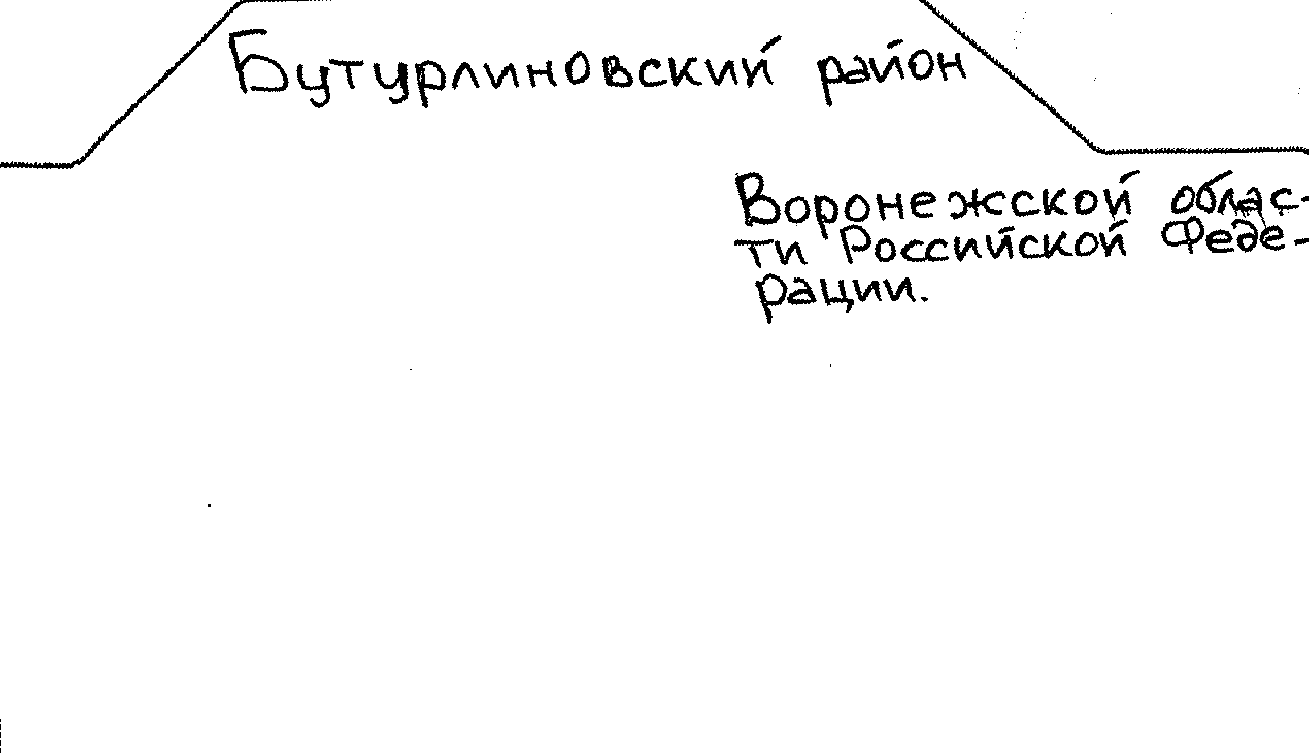 Бутурлиновский район
Воронежской облас-
ти Российской Феде-
рации.